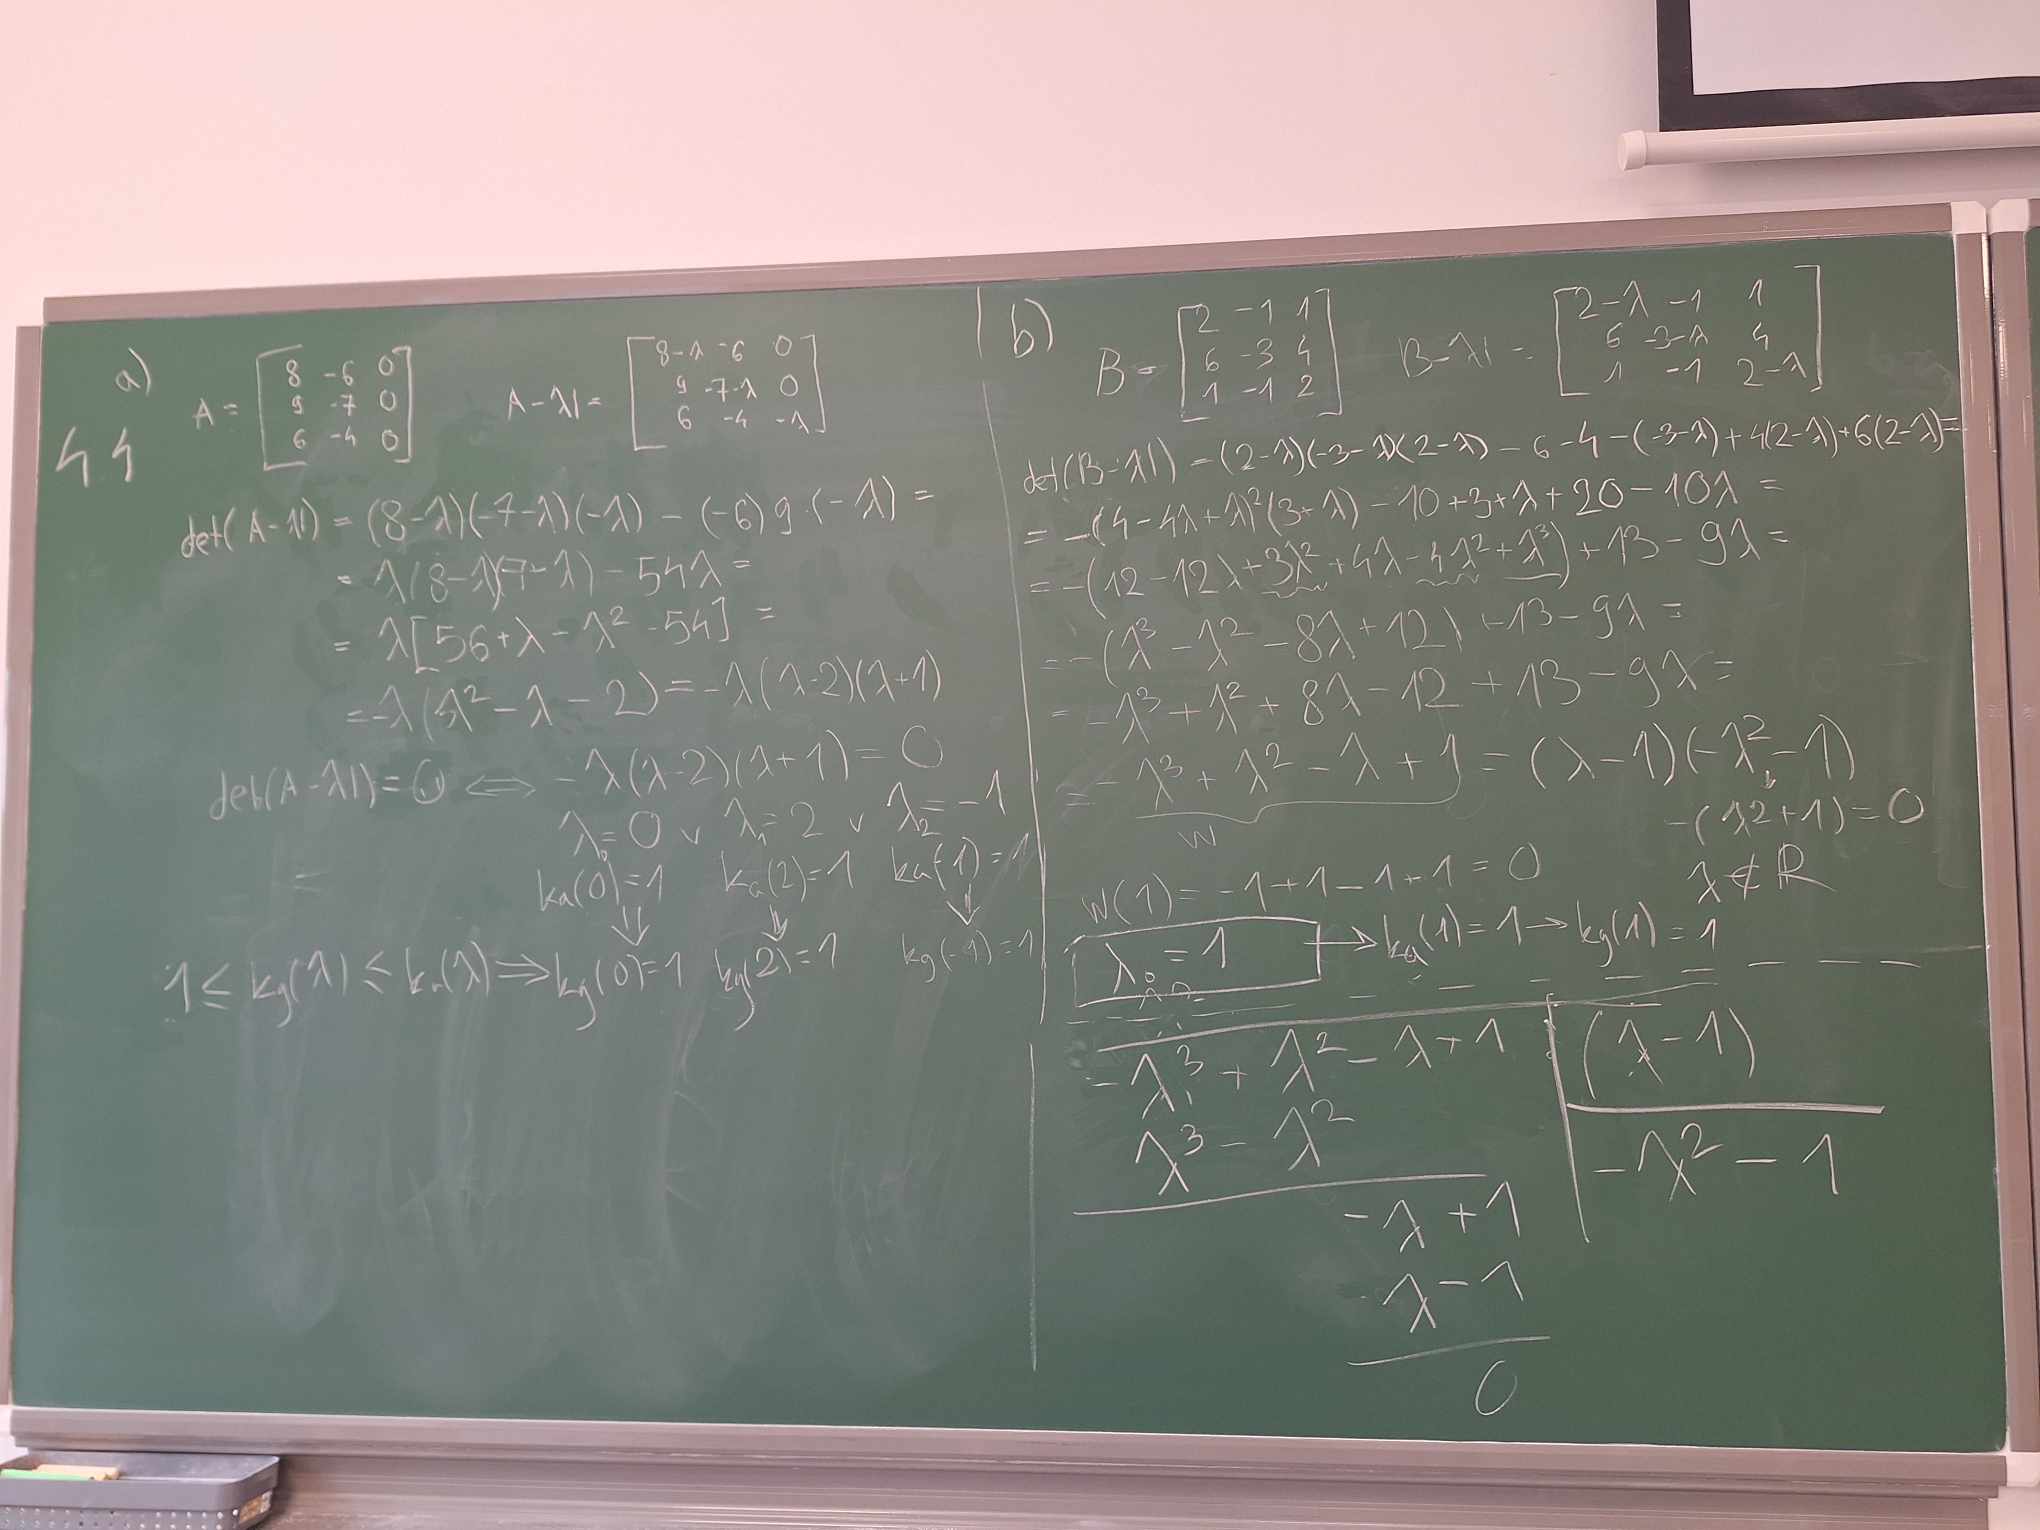 4.4
a)
A = [8 -6 0
9 -7 0
6 -4 0]
A-λI = [8-λ -6 0
9 -7-λ 0
6 -4 -λ]
det(A-λI) = (8-λ)(-7-λ)(-λ) - (-6)9·(-λ) =
= λ(8-λ)(7+λ) - 54λ =
= λ[56+λ-λ² -54] =
= -λ(λ²-λ-2) = -λ(λ-2)(λ+1)
det(A-λI)=0 ⟺ -λ(λ-2)(λ+1) = 0
λ₀=0 ∨ λ₁=2 ∨ λ₂=-1
ka(0)=1 ka(2)=1 ka(-1)=1
⇓ ⇓ ⇓
1 ≤ kg(λ) ≤ ka(λ) ⟹ kg(0)=1 kg(2)=1 kg(-1)=1
b)
B = [2 -1 1
6 -3 4
1 -1 2]
B-λI = [2-λ -1 1
6 -3-λ 4
1 -1 2-λ]
det(B-λI) = (2-λ)(-3-λ)(2-λ) - 6 - 4 - (-3-λ) + 4(2-λ) + 6(2-λ) =
= -(4-4λ+λ)²(3+λ) - 10 + 3 + λ + 20 - 10λ =
= -(12-12λ+3λ²+4λ-4λ²+λ³) + 13 - 9λ =
= -(λ³-λ²-8λ+12) +13 - 9λ =
= -λ³+λ²+8λ-12+13-9λ =
= -λ³+λ²-λ+1 = (λ-1)(-λ²-1)
W
-(λ²+1)=0
λ∉ℝ
W(1) = -1+1-1+1 = 0
λ₀=1 → ka(1)=1 → kg(1)=1
-λ³+λ²-λ+1 (λ-1)
λ³-λ² -λ²-1
-λ+1
λ-1
0